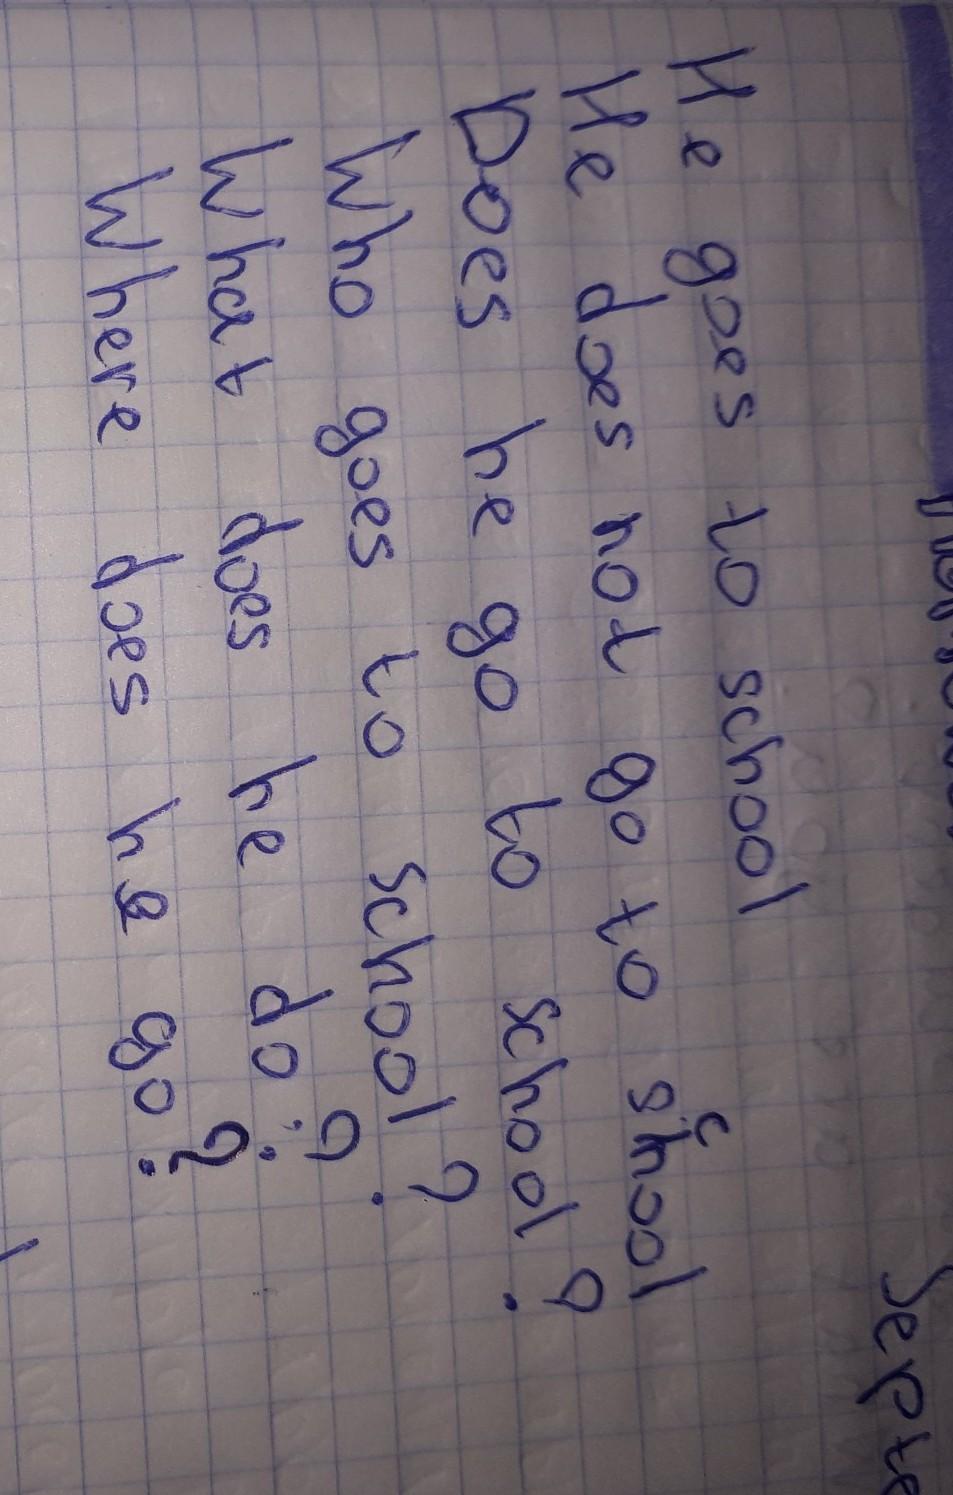 He goes to school
He does not go to school
Does he go to school?
Who goes to school?
What does he do?
Where does he go?